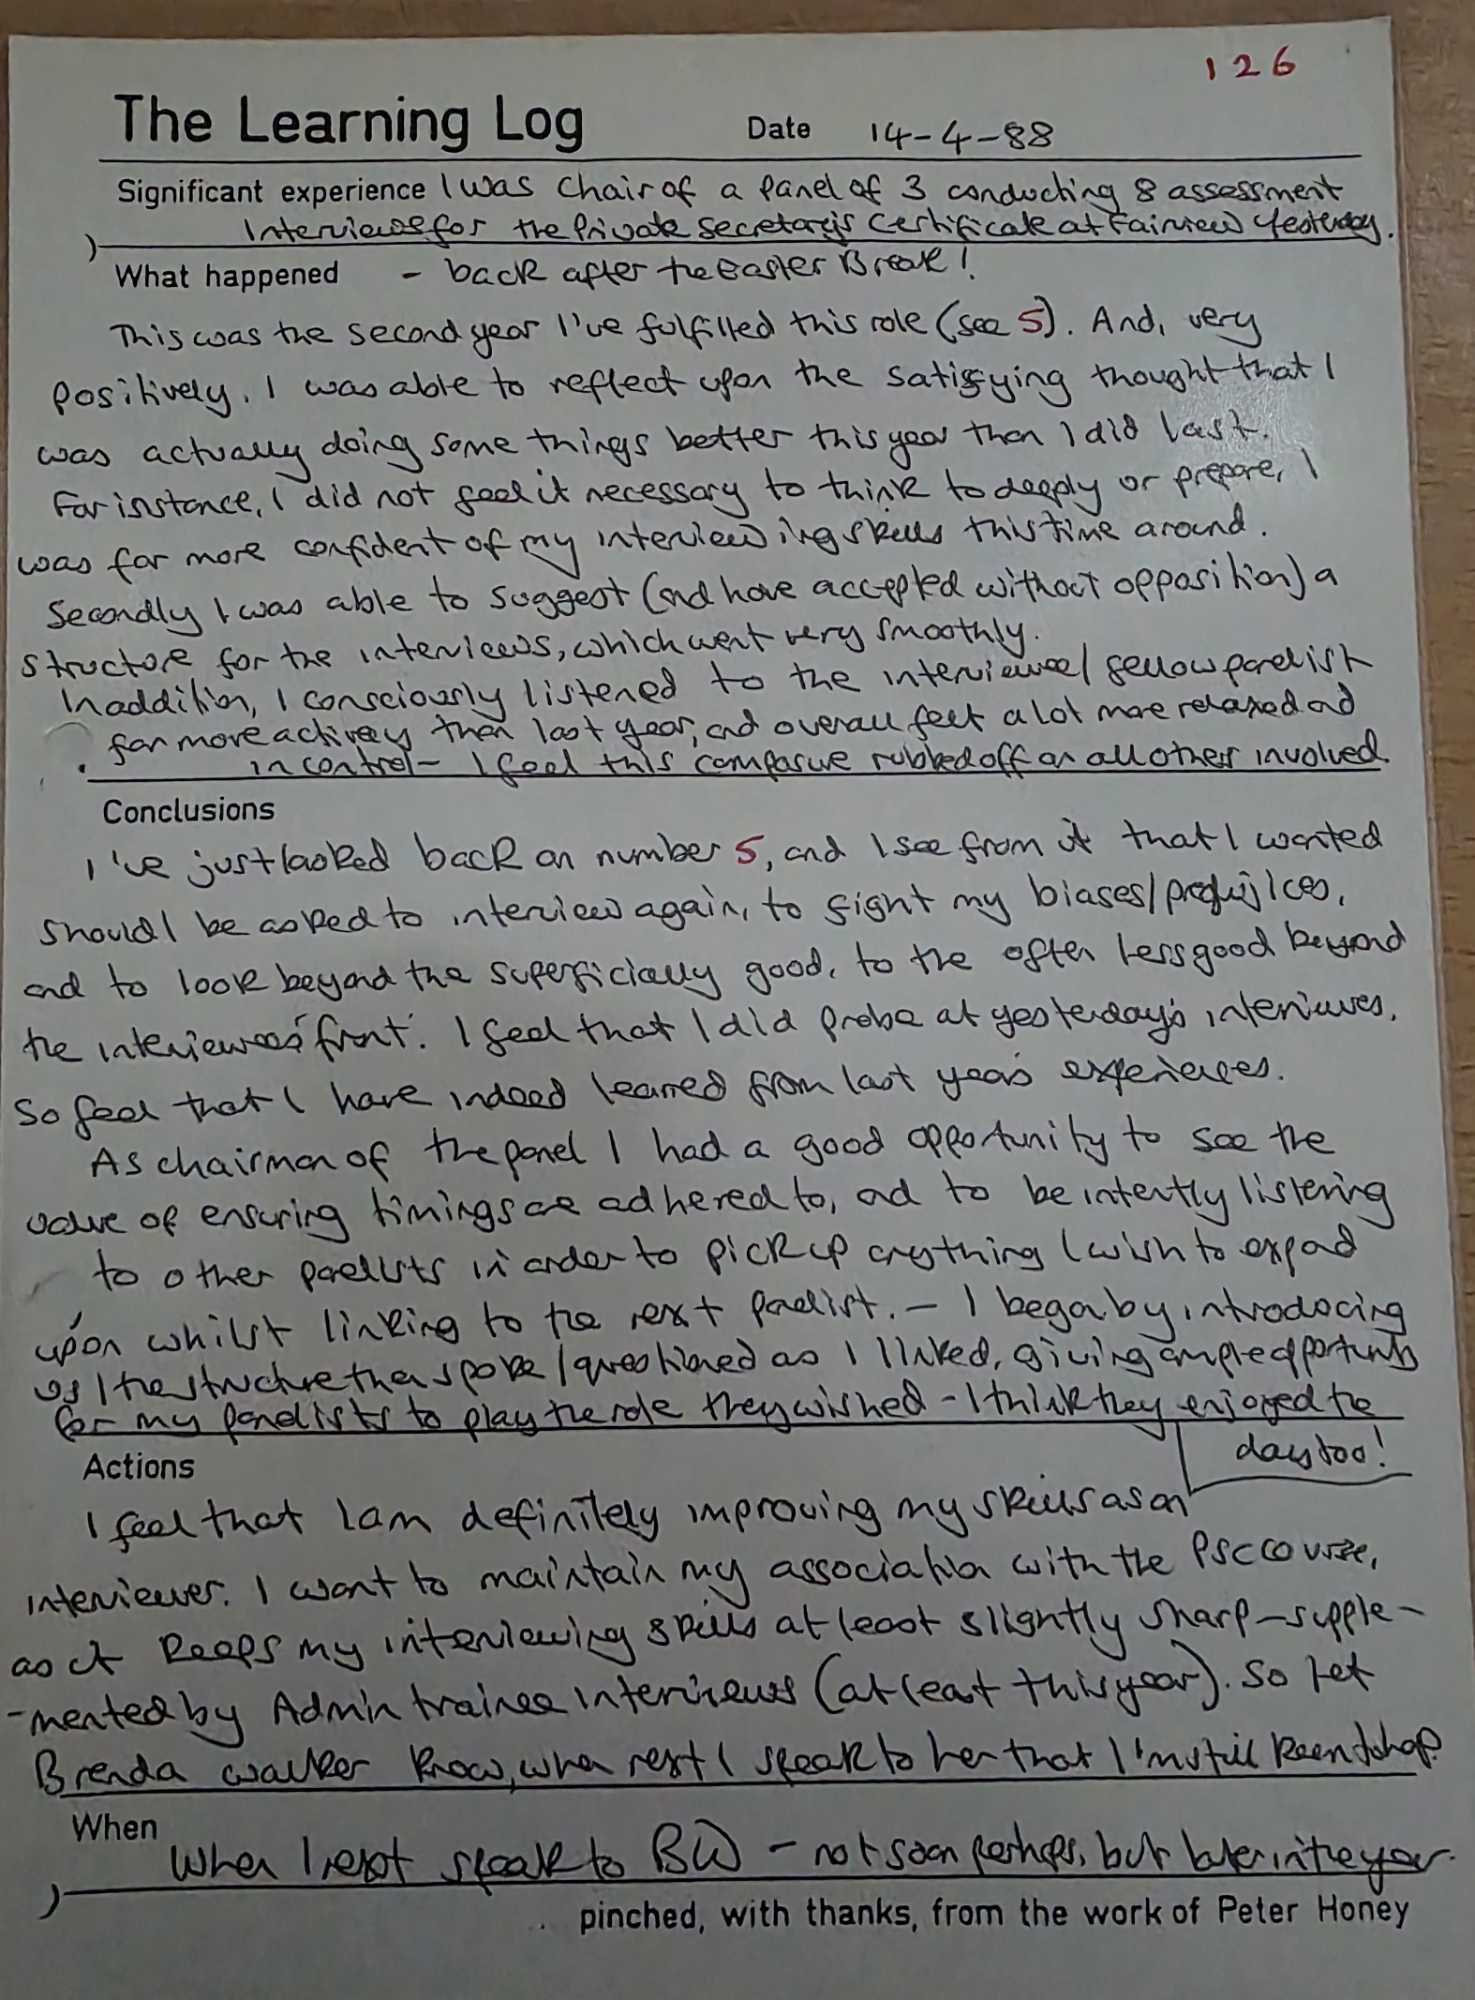 126
The Learning Log Date 14-4-88
Significant experience I was Chair of a panel of 3 conducting 8 assessment
Interviews for the Private Secretary's Certificate at Fairview Yesterday.
What happened - back after the Easter Break!
This was the second year I've fulfilled this role (see 5). And, very
positively, I was able to reflect upon the satisfying thought that I
was actually doing some things better this year than I did last.
For instance, I did not feel it necessary to think to deeply or prepare, I
was far more confident of my interviewing skills this time around.
Secondly I was able to suggest (and have accepted without opposition) a
structure for the interviews, which went very smoothly.
In addition, I consciously listened to the interviewee/fellow panelist
far more actively than last year, and overall felt a lot more relaxed and
in control - I feel this composure rubbed off on all others involved.
Conclusions
I've just looked back on number 5, and I see from it that I wanted
should I be asked to interview again, to fight my biases/prejudices,
and to look beyond the superficially good, to the often less good beyond
the interviewees 'front'. I feel that I did probe at yesterday's interviews,
so feel that I have indeed learned from last year's experiences.
As chairman of the panel I had a good opportunity to see the
value of ensuring timings are adhered to, and to be intently listening
to other panelists in order to pick up anything I wish to expand
upon whilst linking to the next panelist. - I began by introducing
us / the structure then spoke / questioned as I linked, giving ample opportunity
for my panelists to play the role they wished - I think they enjoyed the
day too!
Actions
I feel that I am definitely improving my skills as an
interviewer. I want to maintain my association with the PSC course,
as it keeps my interviewing skills at least slightly sharp - supple-
-mented by Admin trainee interviews (at least this year). So let
Brenda Walker know, when next I speak to her that I'm still keen to help.
When When I next speak to BW - not soon perhaps, but later in the year.
pinched, with thanks, from the work of Peter Honey